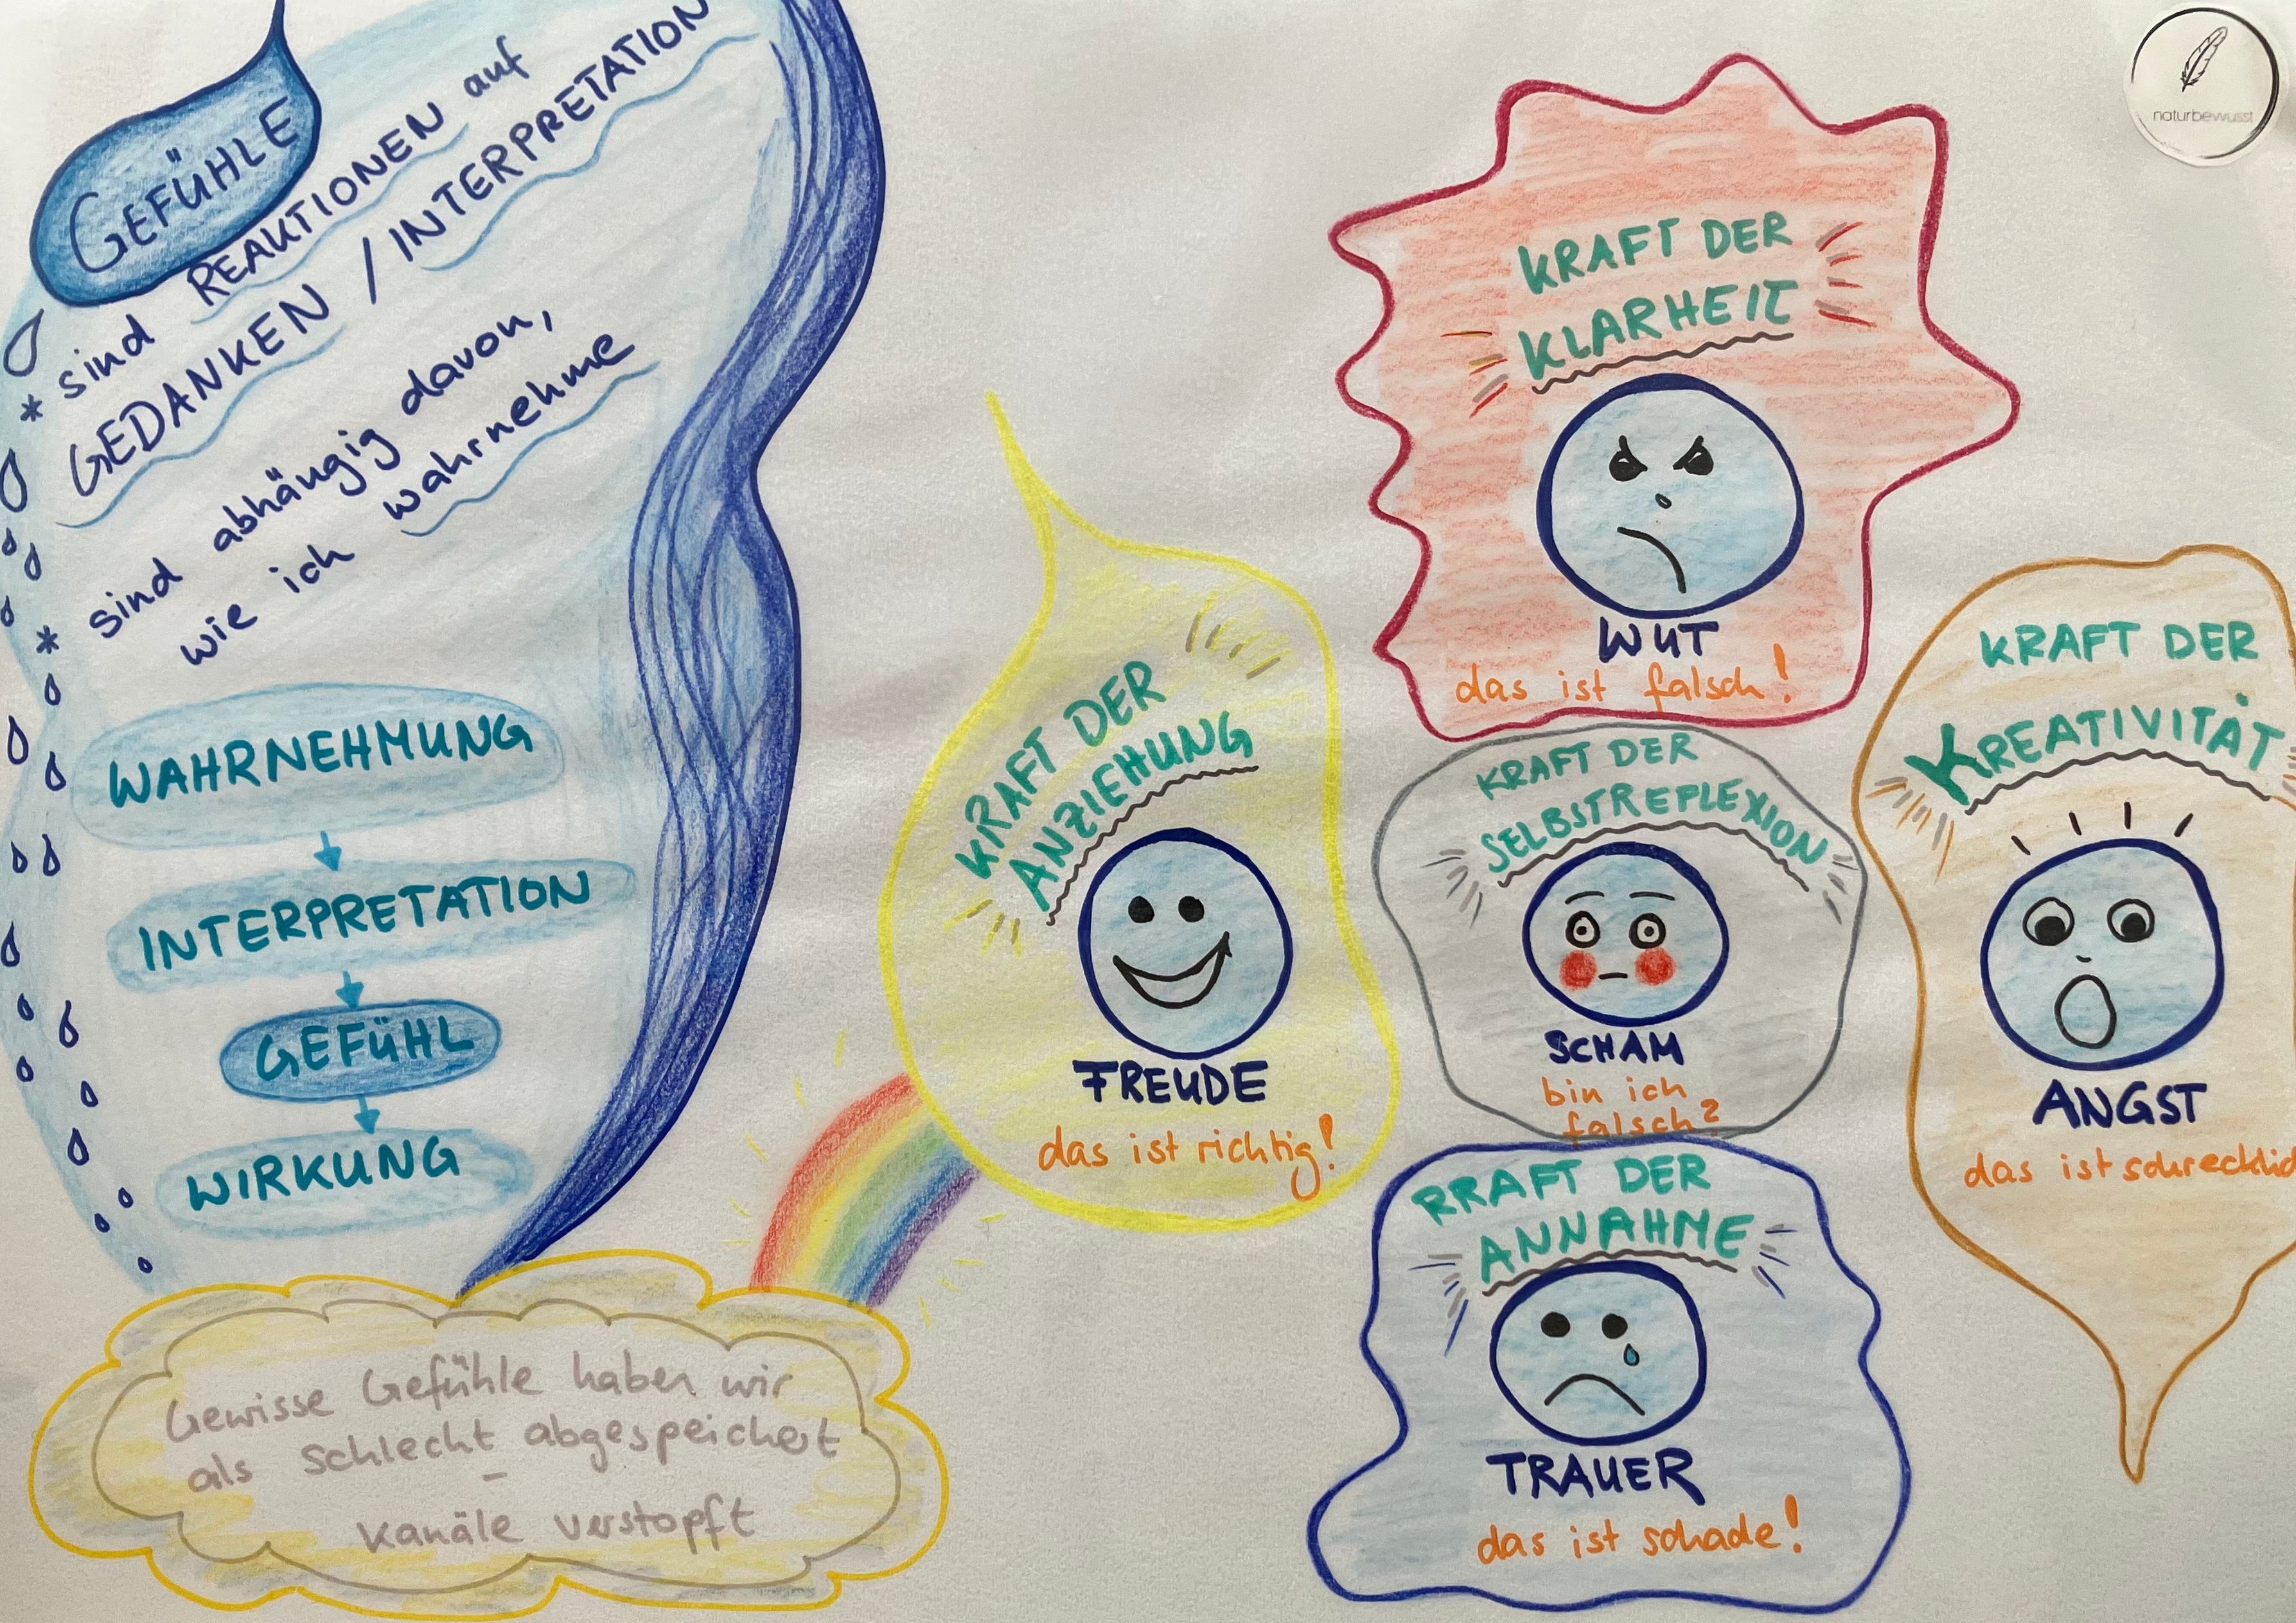 GEFÜHLE
* sind REAKTIONEN auf
GEDANKEN / INTERPRETATION
* sind abhängig davon,
wie ich wahrnehme
WAHRNEHMUNG
INTERPRETATION
GEFÜHL
WIRKUNG
Gewisse Gefühle haben wir
als schlecht abgespeichert
–
Kanäle verstopft
KRAFT DER
ANZIEHUNG
FREUDE
das ist richtig!
KRAFT DER
KLARHEIT
WUT
das ist falsch!
KRAFT DER
SELBSTREFLEXION
SCHAM
bin ich
falsch?
RRAFT DER
ANNAHME
TRAUER
das ist schade!
KRAFT DER
KREATIVITÄT
ANGST
das ist schrecklic
naturbewusst